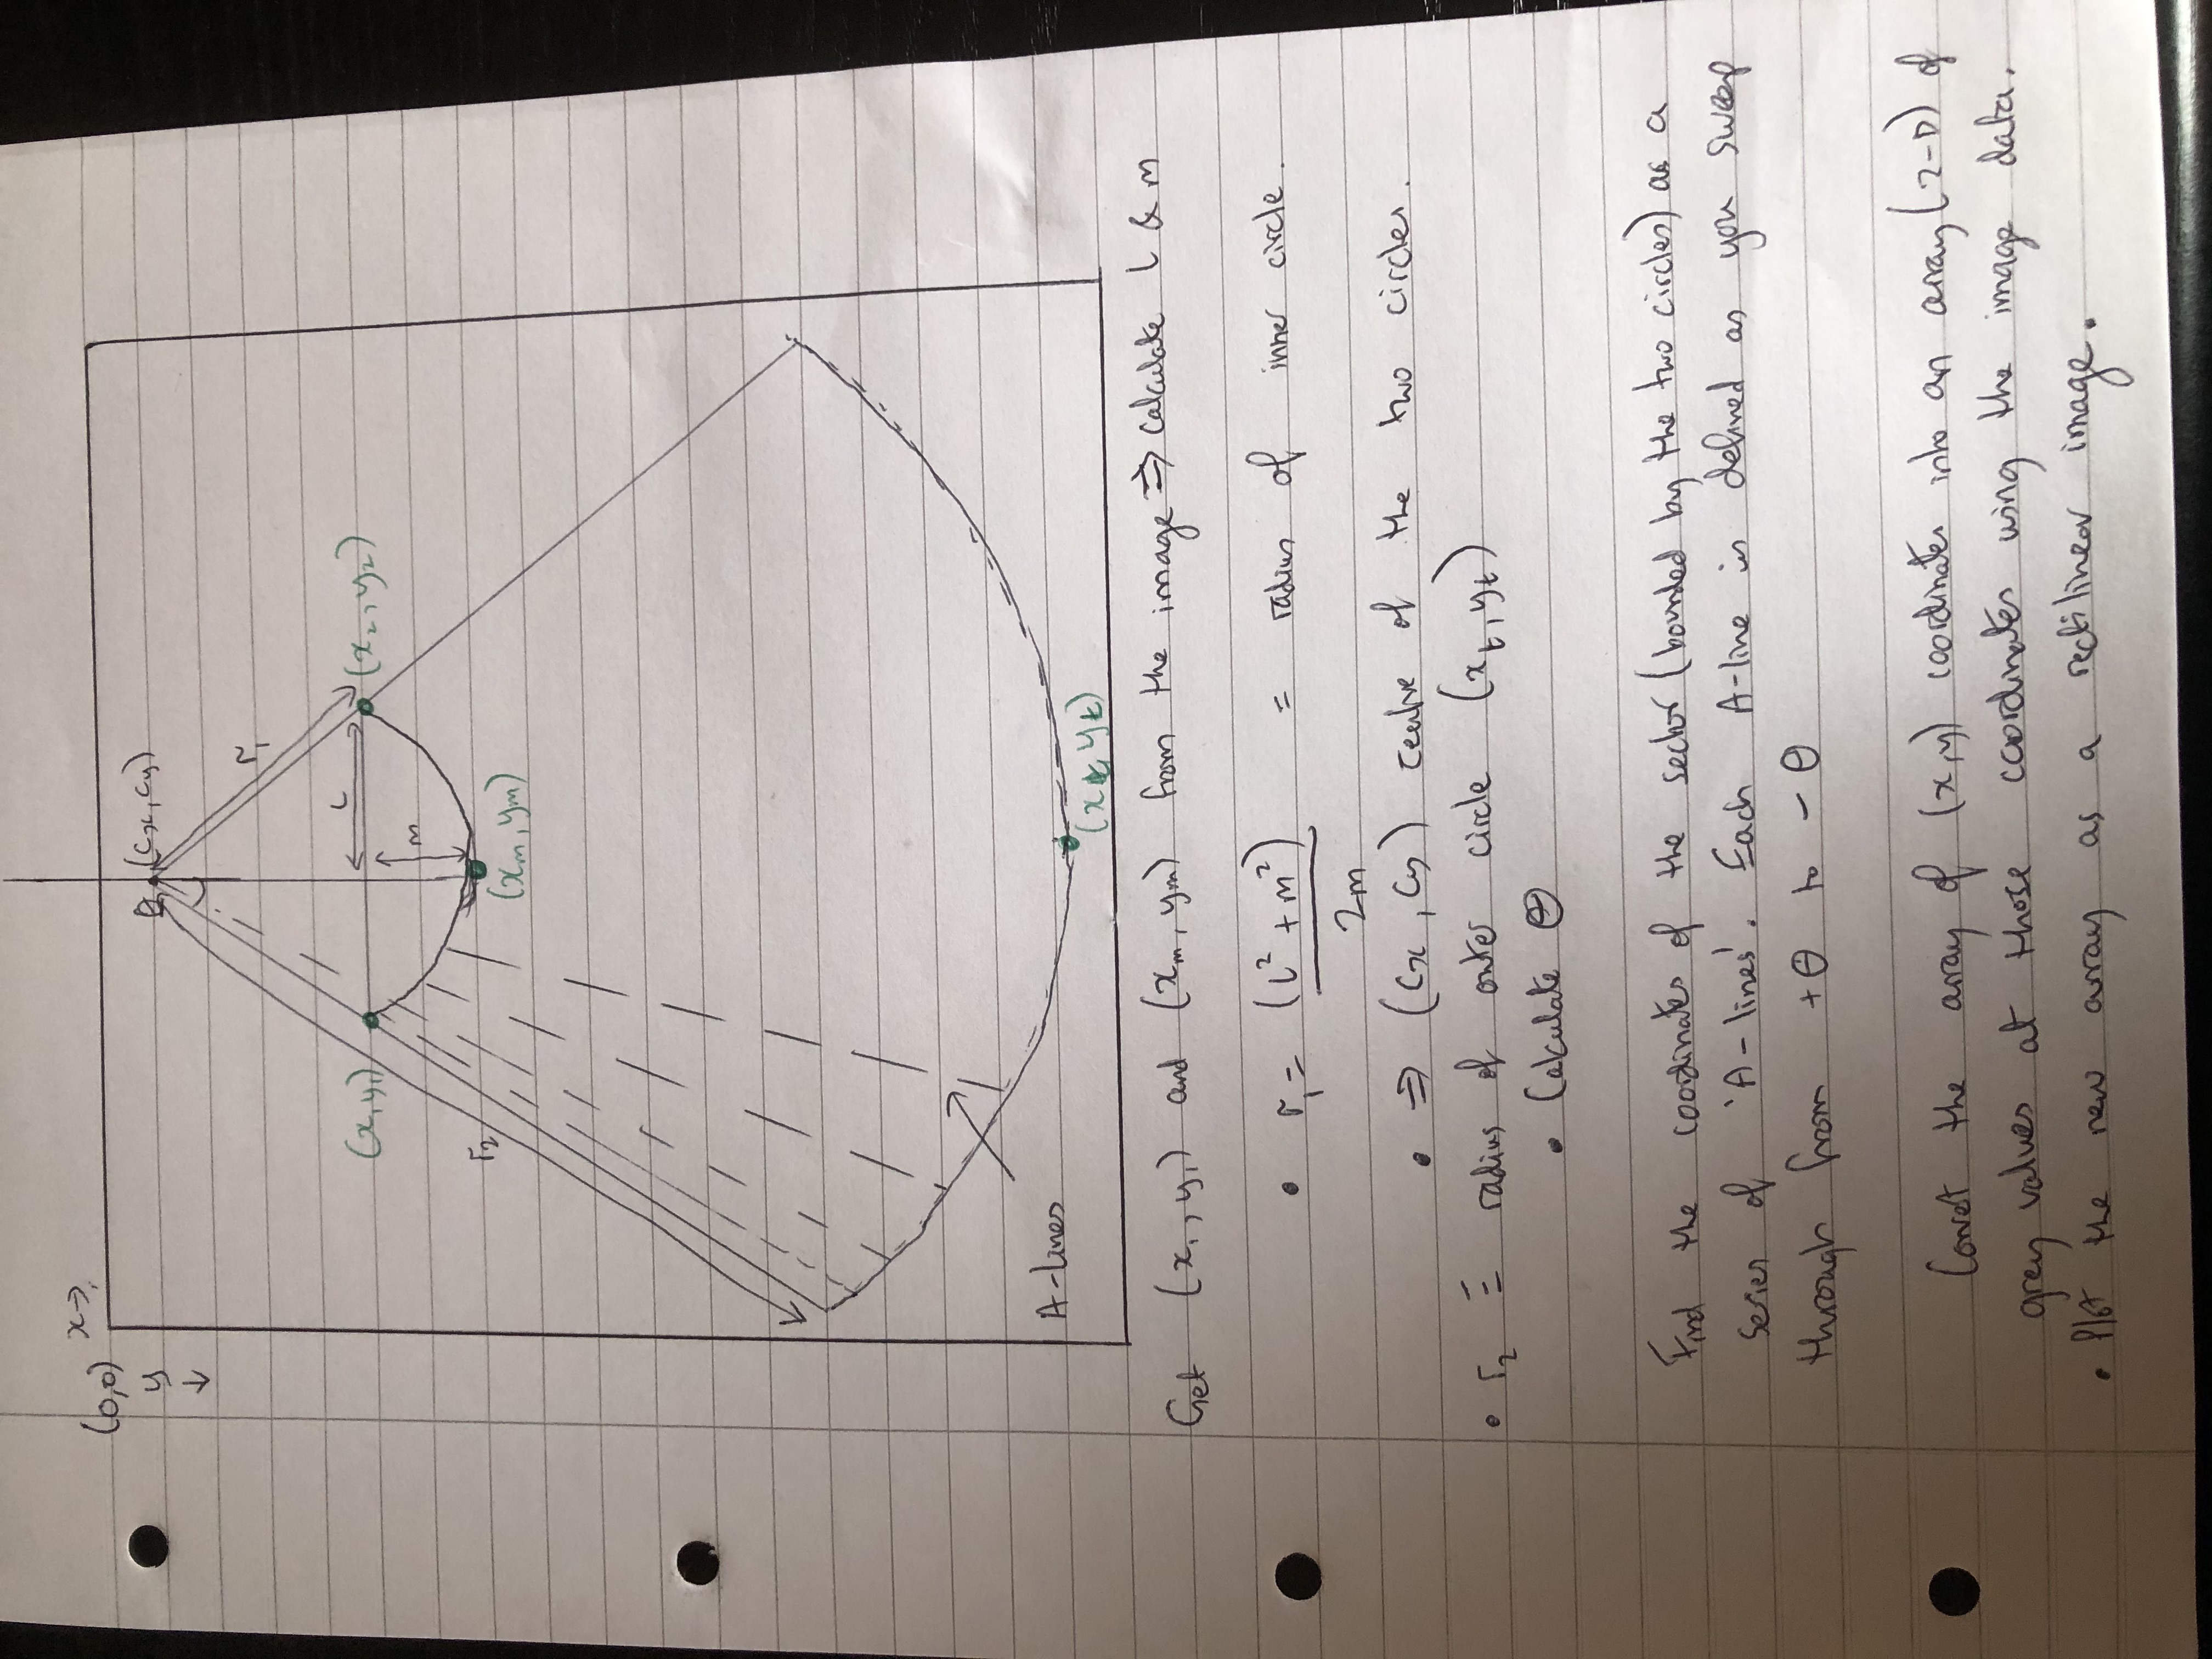 x→
(0,0)
y
↓
θ (Cx, Cy)
r₁
L
(x₁y₁)
(x₂, y₂)
m
r₂
(xm, ym)
A-lines
(xt, yt)
Get (x₁, y₁) and (xm, ym) from the image ⇒ calculate L & m
• r₁ = (L² + m²) = radius of inner circle.
2m
• ⇒ (Cx, Cy) centre of the two circles.
• r₂ ≡ radius of outer circle (xt, yt)
• Calculate θ
Find the coordinates of the sector (bounded by the two circles) as a
series of 'A-lines'. Each A-line is defined as you sweep
through from +θ to -θ
Convet the array of (x,y) coordinates into an array (2-D) of
grey values at those coordinates using the image data.
• Plot the new array as a rectilinear image.